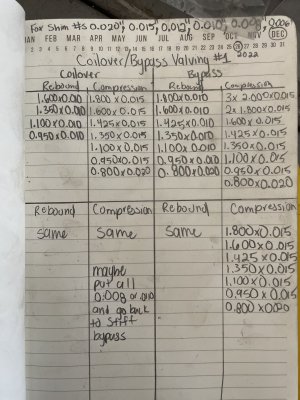 For Shim #'s 0.020", 0.015", 0.012", 0.010", 0.008", 0.006"
AN FEB MAR APR MAY JUN JUL AUG SEP OCT NOV DEC
2 3 4 5 6 7 8 9 10 11 12 13 14 15 16 17 18 19 20 21 22 23 24 25 26 27 28 29 30 31
Coilover/Bypass Valving #1 2022
Coilover Bypass
Rebound Compression Rebound Compression
1.600x0.010 1.800x0.015 1.800x0.010 3x 2.000x0.015
1.350x0.010 1.600x0.015 1.600x0.010 2x 1.800x0.015
1.100x0.010 1.425x0.015 1.425x0.010 1.600x0.015
0.950x0.010 1.350x0.015 1.350x0.010 1.425x0.015
1.100x0.015 1.100x0.010 1.350x0.015
0.950x0.015 0.950x0.010 1.100x0.015
0.800x0.020 0.800x0.020 0.950x0.015
0.800x0.020
Rebound Compression Rebound Compression
same same same 1.800x0.015
1.600x0.015
1.425x0.015
maybe 1.350x0.015
put all 1.100x0.015
0.008 or .010 0.950x0.015
and go back 0.800x0.020
to stiff
bypass